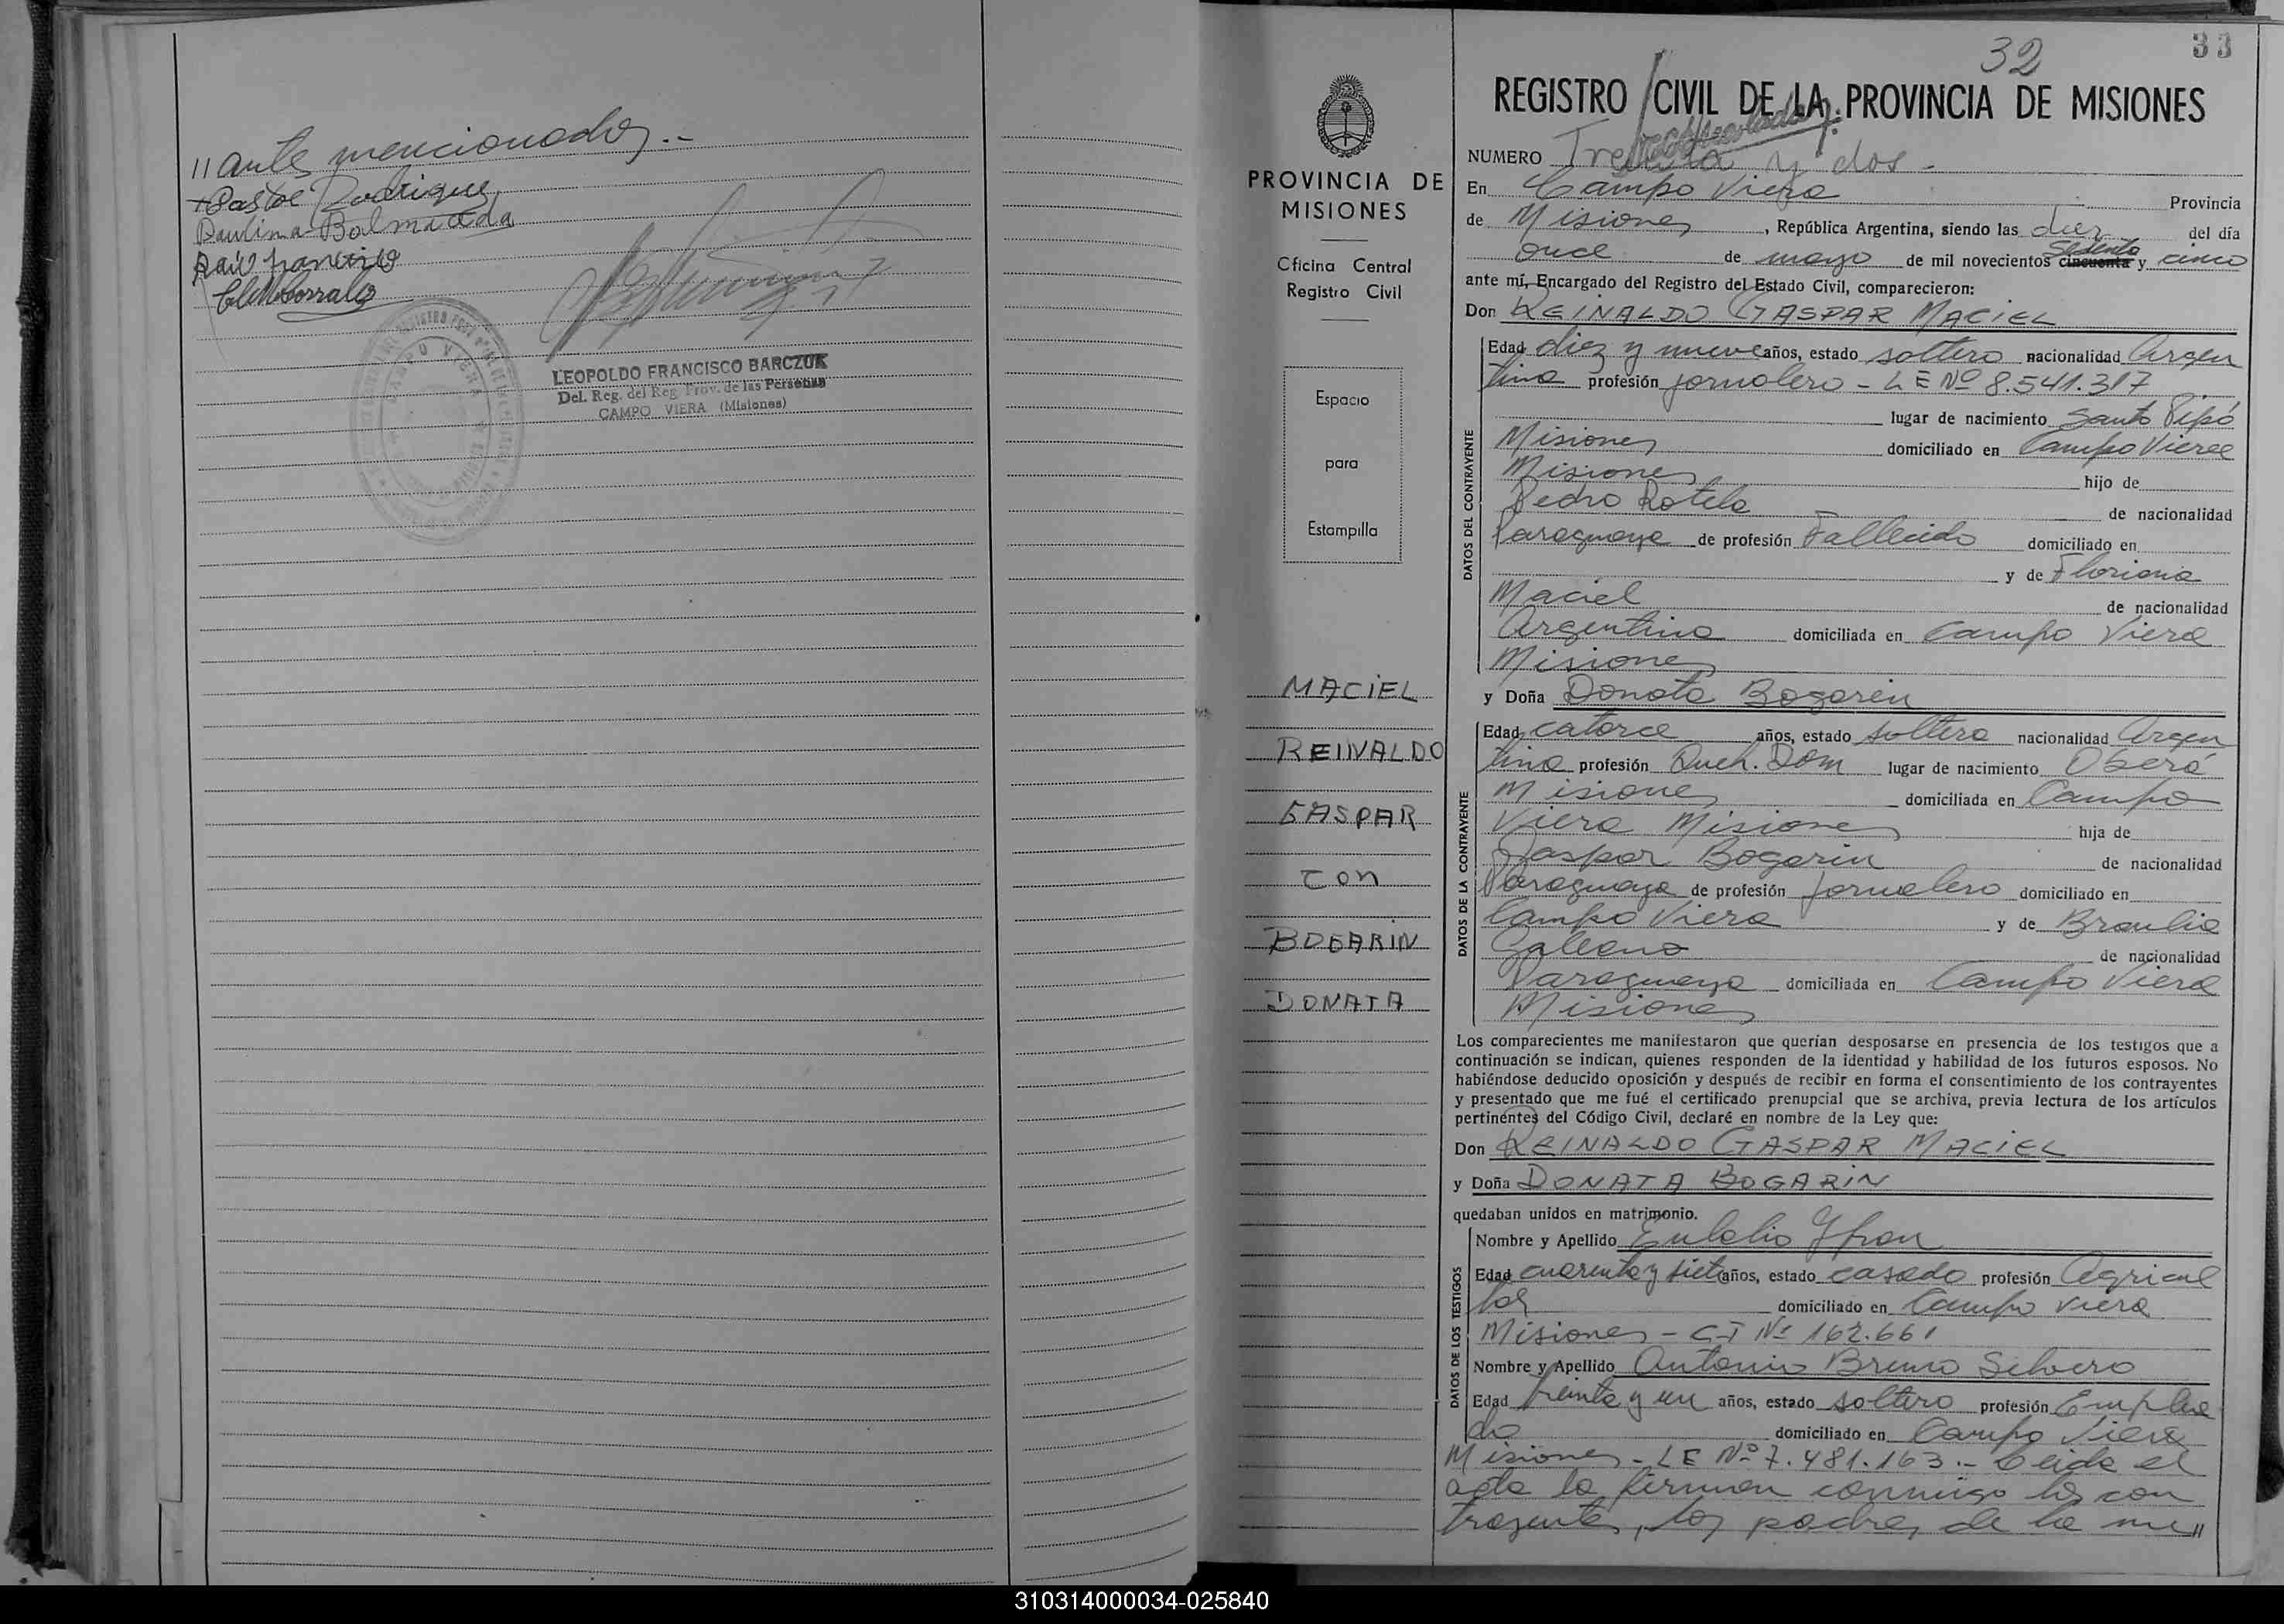 // ante mencionados.-
+Pastor Rodriguez
Paulina Balmaceda
LEOPOLDO FRANCISCO BARCZUK
Del. Reg. del Reg. Prov. de las Personas
CAMPO VIERA (Misiones)
32
33
REGISTRO CIVIL DE LA PROVINCIA DE MISIONES
PROVINCIA DE
MISIONES
Oficina Central
Registro Civil
Espacio
para
Estampilla
MACIEL
REINALDO
GASPAR
con
BOGARIN
DONATA
NUMERO Treinta y dos.-
En Campo Viera Provincia
de Misiones, República Argentina, siendo las diez del día
once de mayo de mil novecientos cincuenta sesenta y cinco
ante mí, Encargado del Registro del Estado Civil, comparecieron:
Don REINALDO GASPAR MACIEL
DATOS DEL CONTRAYENTE
Edad diez y nueve años, estado soltero nacionalidad Argen
tina profesión jornalero - LE Nº 8.541.317
lugar de nacimiento Santo Pipó
Misiones domiciliado en Campo Viera
Misiones hijo de
Pedro Rotela de nacionalidad
Paraguaya de profesión Fallecido domiciliado en
y de Floriana
Maciel de nacionalidad
Argentina domiciliada en Campo Viera
Misiones
y Doña Donata Bogarin
DATOS DE LA CONTRAYENTE
Edad catorce años, estado soltera nacionalidad Argen
tina profesión Queh. Dom lugar de nacimiento Oberá
Misiones domiciliada en Campo
Viera Misiones hija de
Gaspar Bogarin de nacionalidad
Paraguaya de profesión jornalero domiciliado en
Campo Viera y de Braulia
Galeano de nacionalidad
Paraguaya domiciliada en Campo Viera
Misiones
Los comparecientes me manifestaron que querían desposarse en presencia de los testigos que a
continuación se indican, quienes responden de la identidad y habilidad de los futuros esposos. No
habiéndose deducido oposición y después de recibir en forma el consentimiento de los contrayentes
y presentado que me fué el certificado prenupcial que se archiva, previa lectura de los artículos
pertinentes del Código Civil, declaré en nombre de la Ley que:
Don REINALDO GASPAR MACIEL
y Doña DONATA BOGARIN
quedaban unidos en matrimonio.
DATOS DE LOS TESTIGOS
Nombre y Apellido Eulalio Yfran
Edad cuarenta y siete años, estado casado profesión Agricul
tor domiciliado en Campo Viera
Misiones - C-I Nº 162.661
Nombre y Apellido Antonio Bruno Silvero
Edad treinta y un años, estado soltero profesión Emplea
do domiciliado en Campo Viera
Misiones - LE Nº 7.481.163.- Leida el
acta la firman conmigo los con
trayentes, los padres de la me//
310314000034-025840